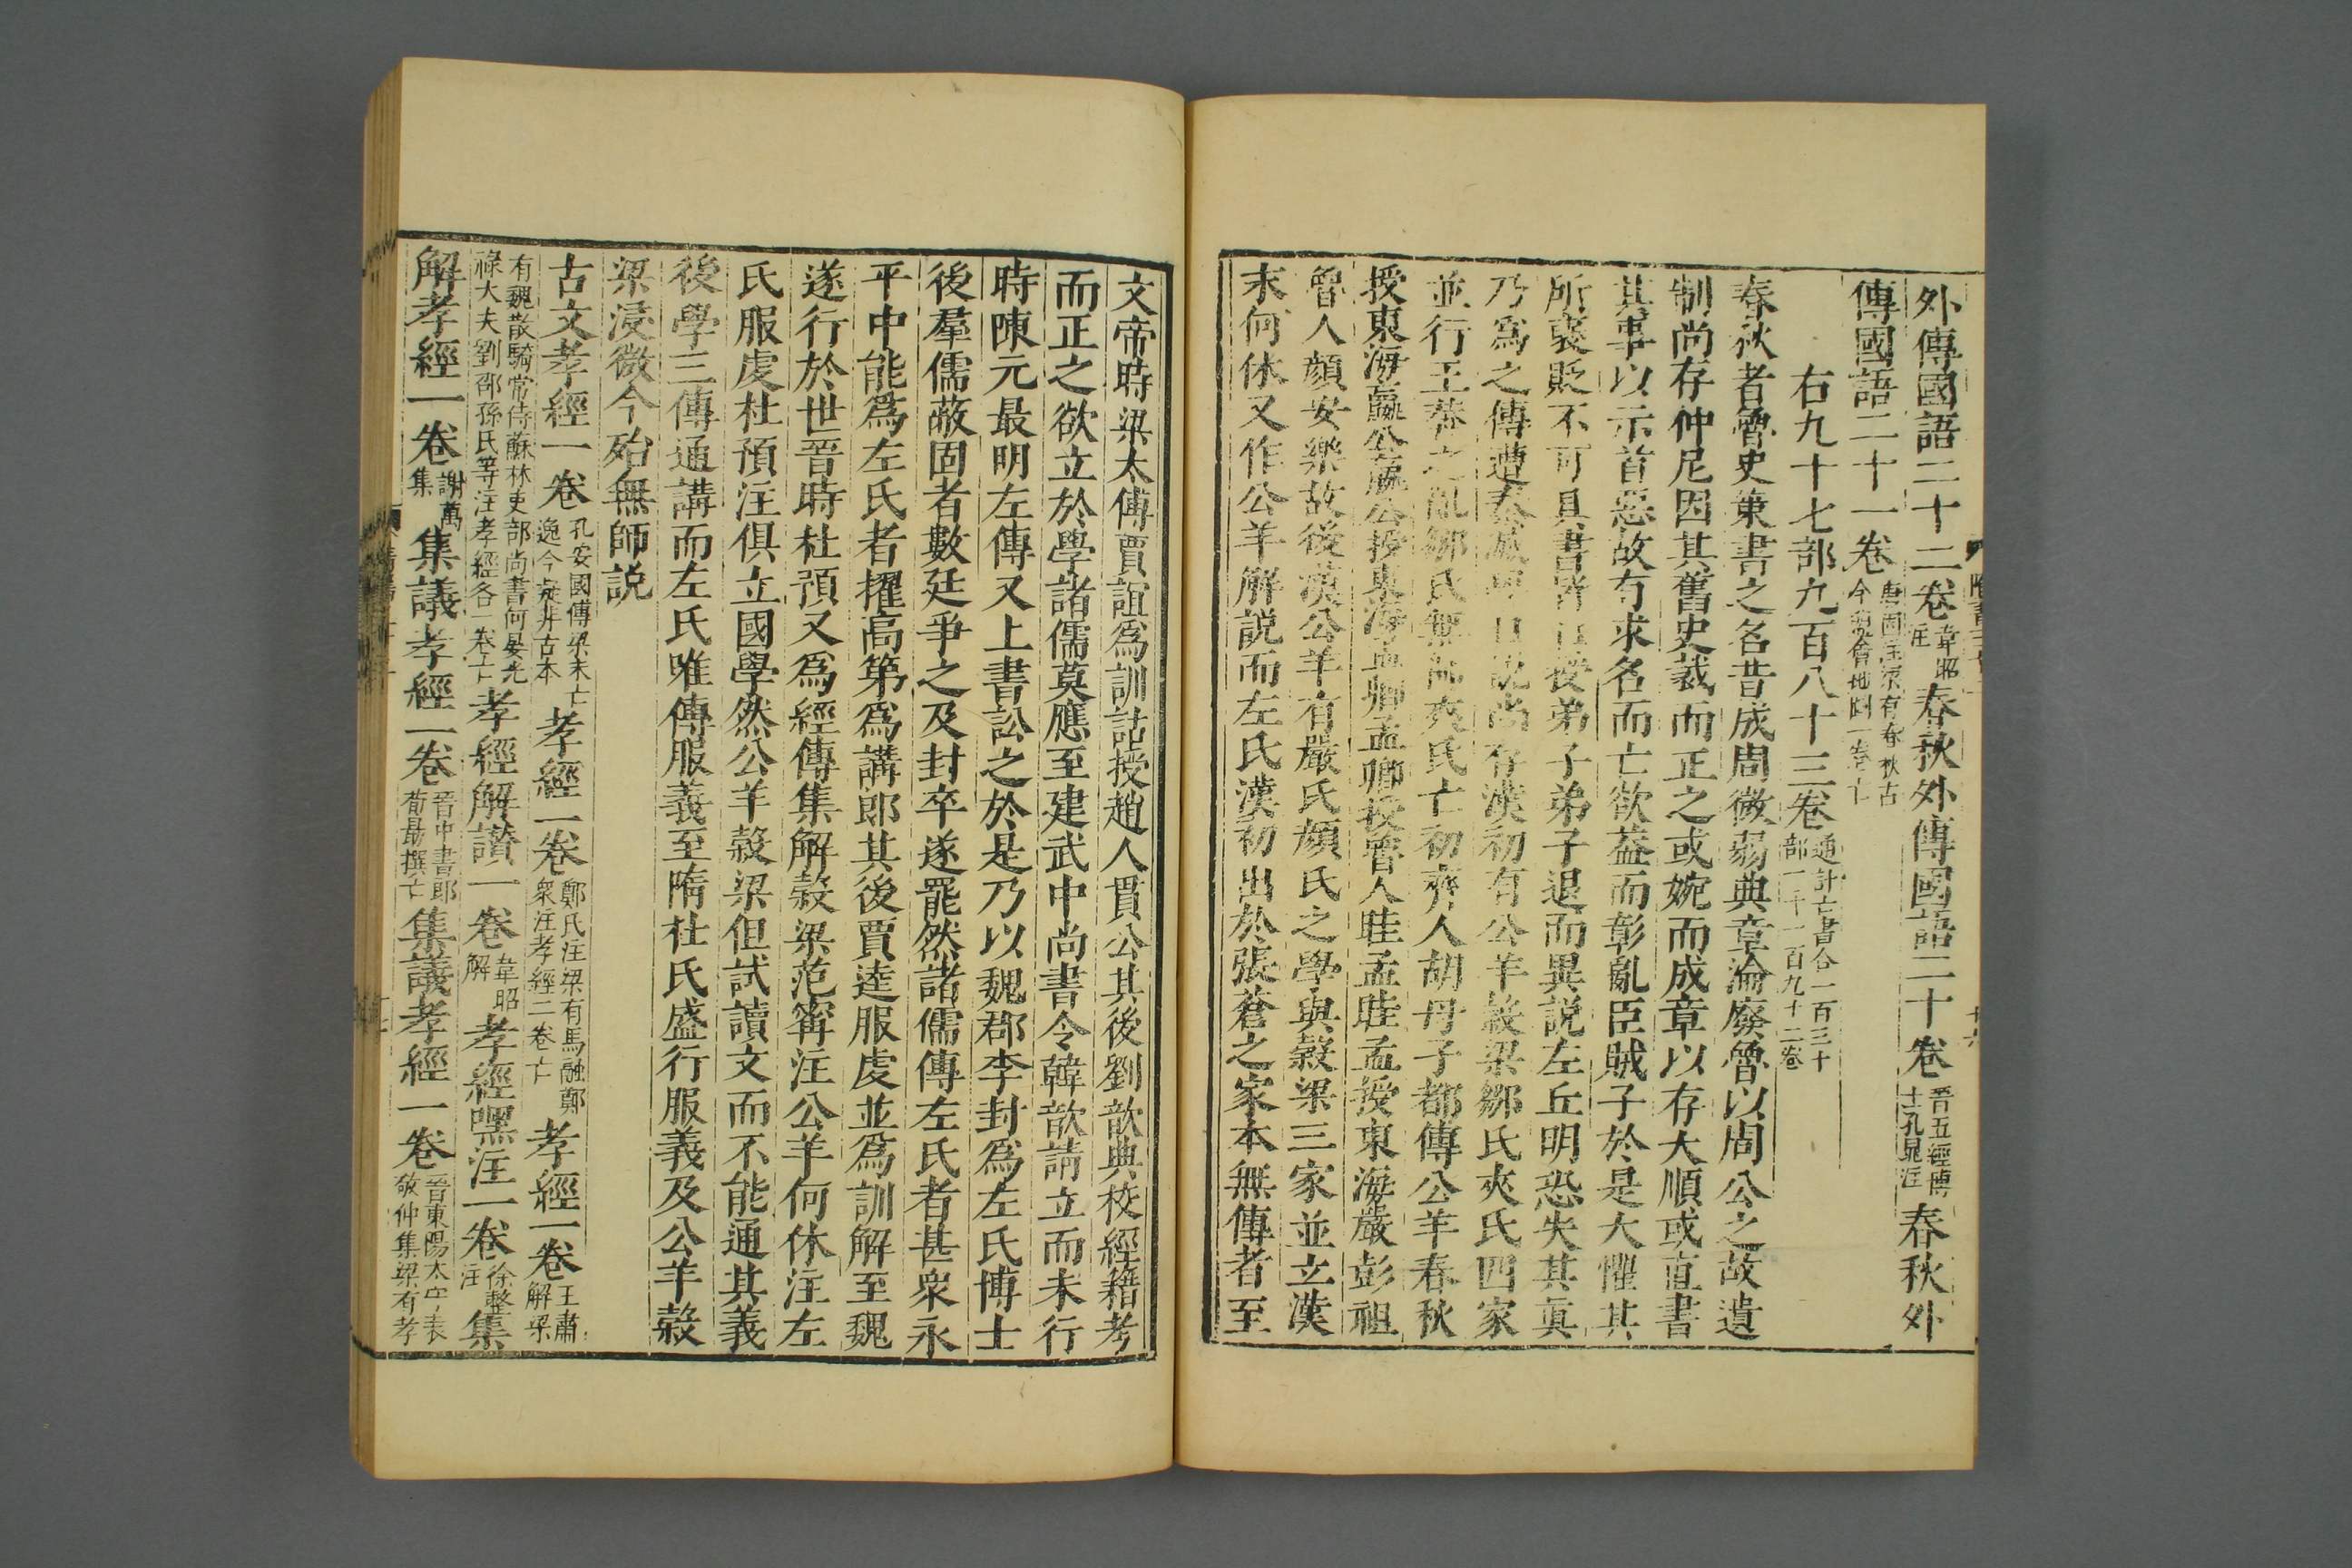 外傳國語二十二卷韋昭注春秋外傳國語二十卷晉五經博士孔晁注春秋外
傳國語二十一卷唐固注梁有春秋古今盟會地圖一卷亡
右九十七部九百八十三卷通計亡書合一百三十部一千一百九十二卷
春秋者魯史策書之名昔成周微弱典章淪廢魯以周公之故遺
制尚存仲尼因其舊史裁而正之或婉而成章以存大順或直書
其事以示首惡故有求名而亡欲蓋而彰亂臣賊子於是大懼其
所褒貶不可具書皆口授弟子弟子退而異說左丘明恐失其真
乃爲之傳遭秦滅學口說尚存漢初有公羊穀梁鄒氏夾氏四家
並行王莽之亂鄒氏無師夾氏亡初齊人胡毋子都傳公羊春秋
授東海嬴公嬴公授東海孟卿孟卿授魯人眭孟眭孟授東海嚴彭祖
魯人顔安樂故後漢公羊有嚴氏顔氏之學與穀梁三家並立漢
末何休又作公羊解說而左氏漢初出於張蒼之家本無傳者至
文帝時梁太傅賈誼爲訓詁授趙人貫公其後劉歆典校經籍考
而正之欲立於學諸儒莫應至建武中尚書令韓歆請立而未行
時陳元最明左傳又上書訟之於是乃以魏郡李封爲左氏博士
後羣儒蔽固者數廷爭之及封卒遂罷然諸儒傳左氏者甚衆永
平中能爲左氏者擢高第爲講郎其後賈逵服虔並爲訓解至魏
遂行於世晉時杜預又爲經傳集解穀梁范甯注公羊何休注左
氏服虔杜預注俱立國學然公羊穀梁但試讀文而不能通其義
後學三傳通講而左氏唯傳服義至隋杜氏盛行服義及公羊穀
梁浸微今殆無師說
古文孝經一卷孔安國傳梁末亡逸今疑非古本孝經一卷鄭氏注梁有馬融鄭衆注孝經二卷亡孝經一卷王肅解梁
有魏散騎常侍蘇林吏部尚書何晏光祿大夫劉邵孫氏等注孝經各一卷亡孝經解讃一卷韋昭解孝經嘿注一卷徐整注集
解孝經一卷謝萬集集議孝經一卷晉中書郎荀勗撰亡集議孝經一卷晉東陽太守袁敬仲集梁有孝